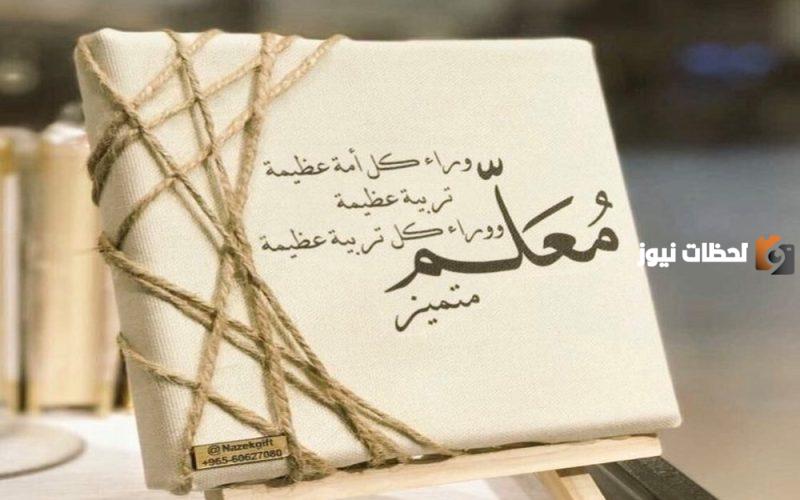 وراء كل أمة عظيمة
تربية عظيمة
ووراء كل تربية عظيمة
مُعَلّم
متميز
لحظات نيوز
@Nazekgift
+965-60627080